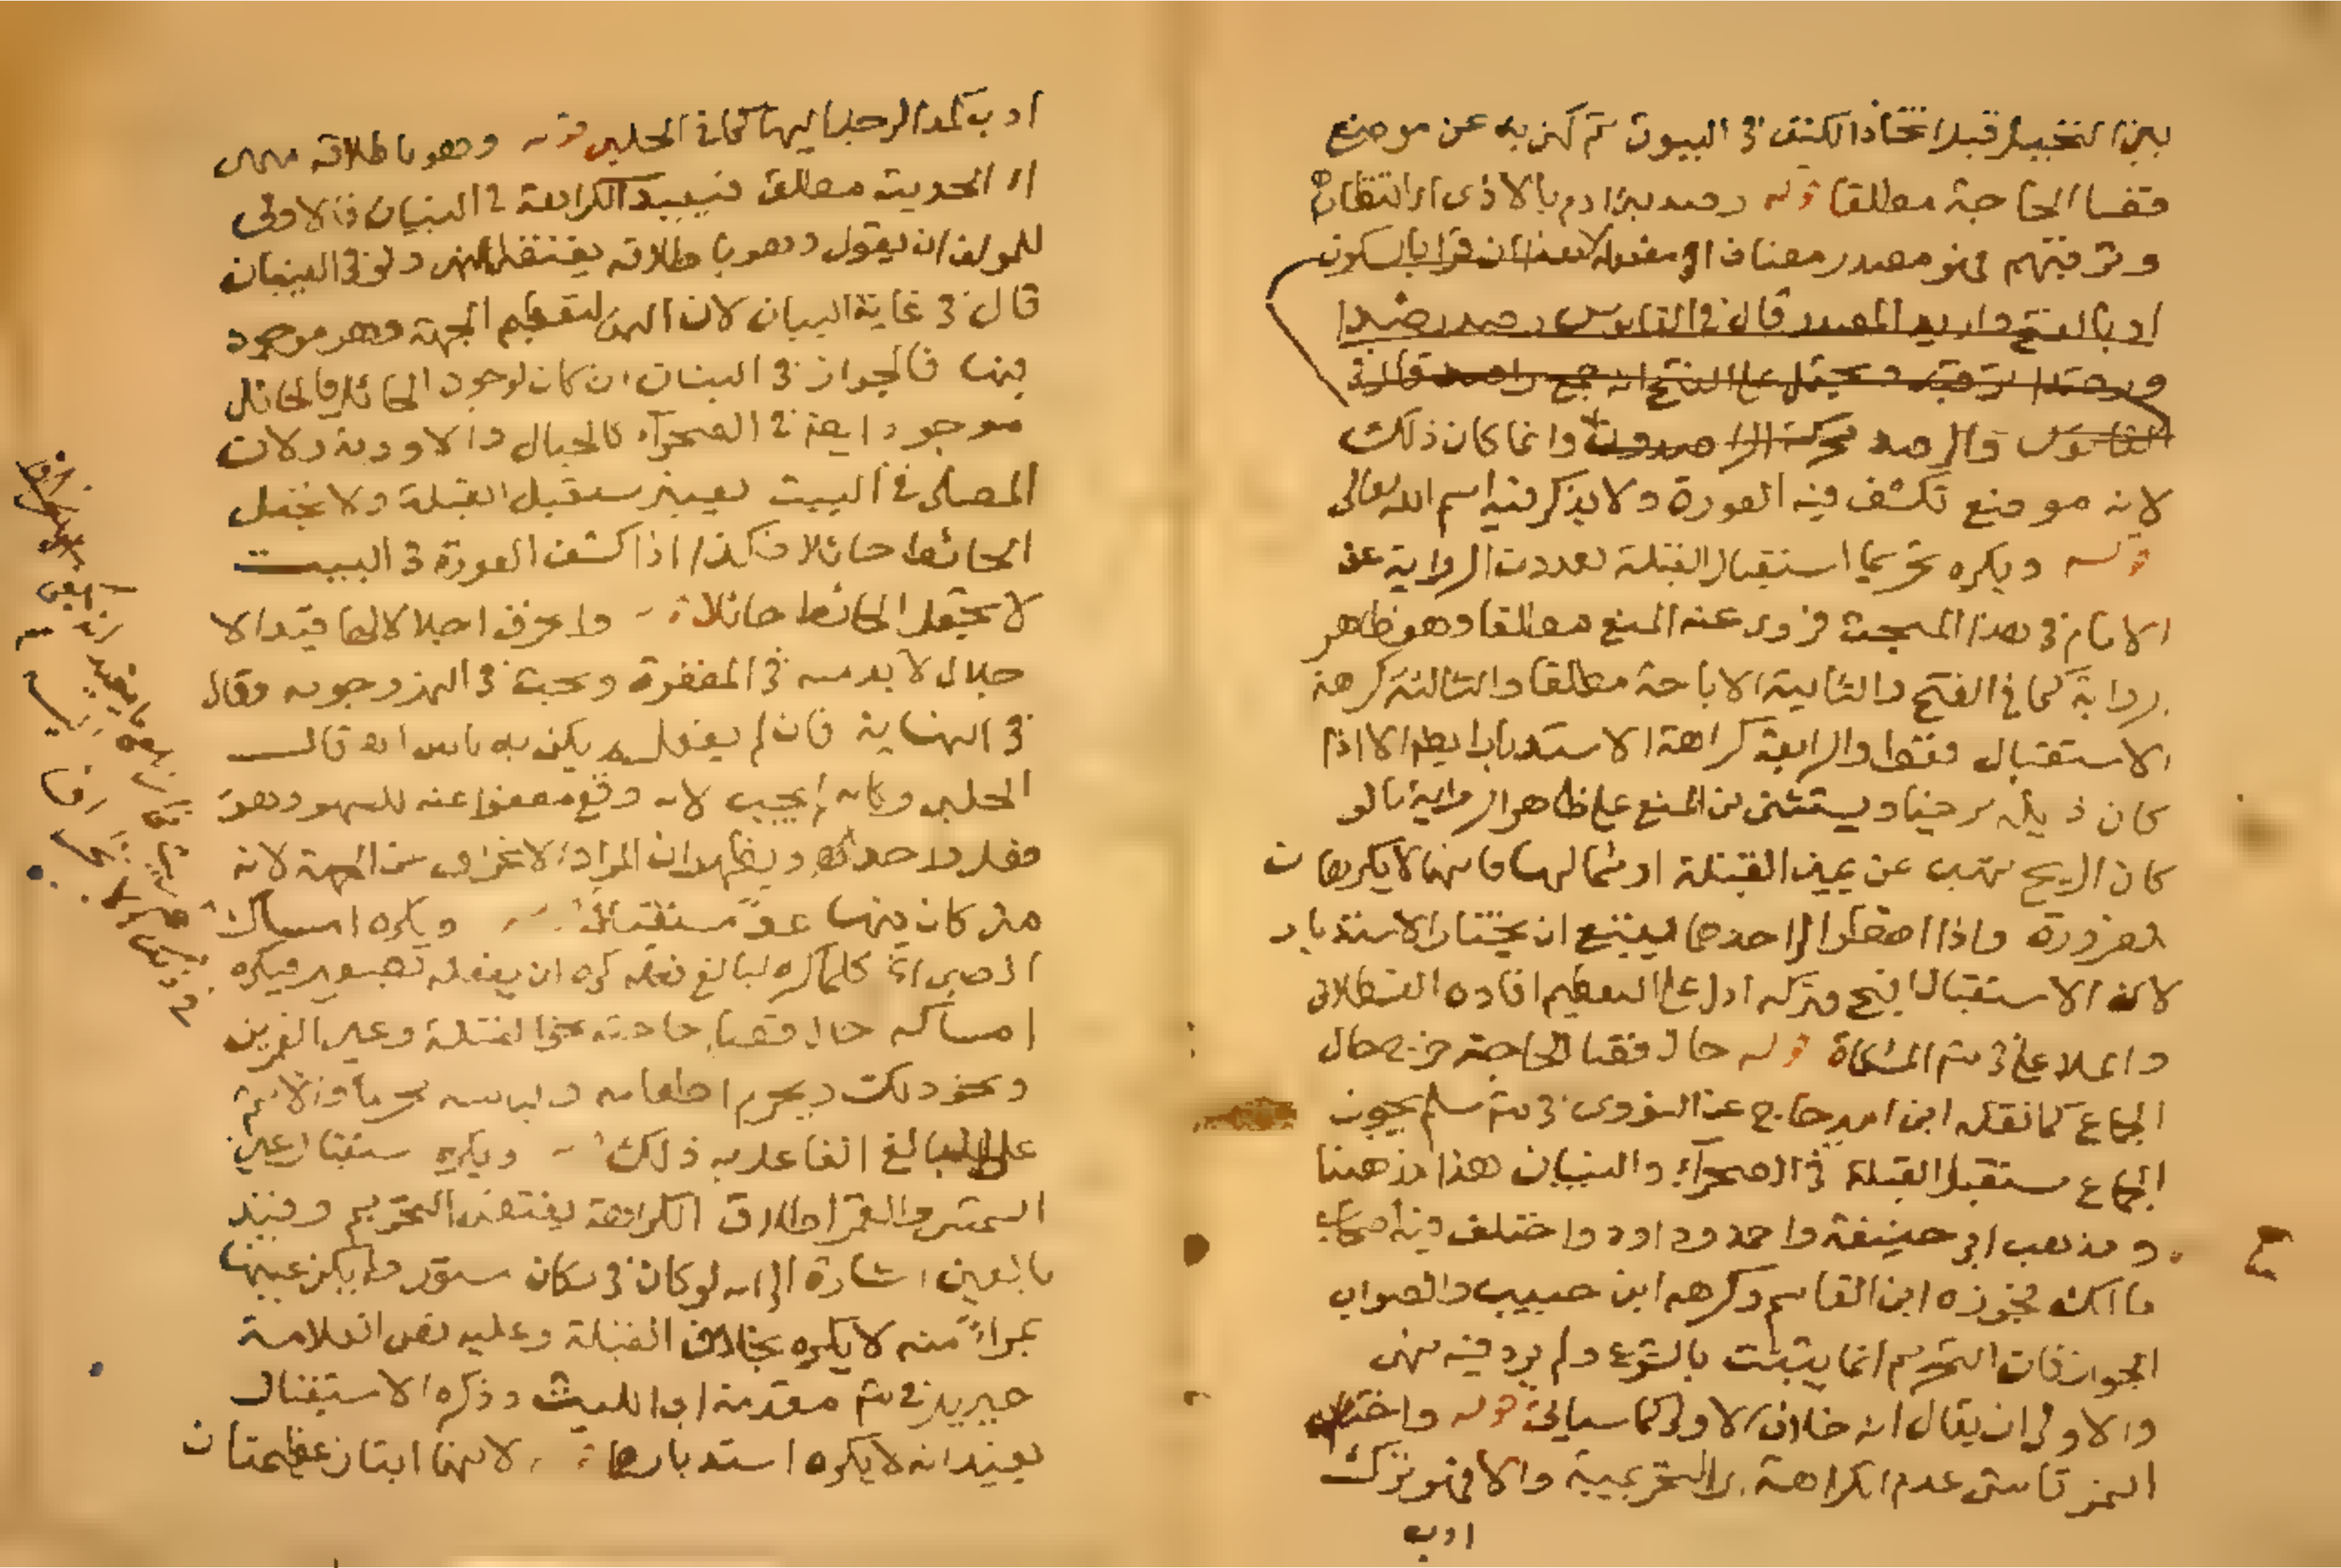 بين النخيل قبل اتخاذ الكنف في البيوت ثم كني به عن موضع
قضا الحاجة مطلقا قوله رصد بني ادم بالاذى اي انتظارهم
وترقبهم فهو مصدر مضاف الى مفعوله هذا ان قرا بالسكون
او بالفتح واريد المصدر قال في القاموس رصده رصدا
ورصدا ترقبه ويحتمل على الفتح انه جمع راصد قال في
القاموس والرصد محركة الراصدون وانما كان ذلك
لانه موضع تكشف فيه العورة ولا يذكر فيه اسم الله تعالى
قوله ويكره تحريما استقبال القبلة تعددت الرواية عن
الامام في هذا المبحث فروي عنه المنع مطلقا وهو ظاهر
رواية كما في الفتح والثانية الاباحة مطلقا والثالثة كرهة
الاستقبال فقط والرابعة كراهة الاستدبار ايضا الا اذا
كان ذيله مرخيا ويستثنى من المنع على ظاهر الرواية ما لو
كان الريح تهب عن يمين القبلة او شمالها فانهما لا يكرهان
لضرورة واذا اضطر الى احدهما ينبغي ان يختار الاستدبار
لان الاستقبال اقبح فتركه ادل على التعظيم افاده القسطلاني
والملا علي في شم المشكاة قوله حال قضا الحاجة خرج حال
الجماع كما نقله ابن امير حاج عن النووي في شم مسلم يجوز
الجماع مستقبل القبلة في الصحراء والبنيان هذا مذهبنا
ومذهب ابي حنيفة واحمد وداود واختلف فيه اصحاب
مالك فجوزه ابن القاسم وكرهه ابن حبيب والصواب
الجواز فان التحريم انما يثبت بالشرع ولم يرد فيه نهي
والاولى ان يقال انه خلاف الاولى كما سياتي قوله واختار
التمرتاشي عدم الكراهة اي التحريمية والا فهو ترك
ادب
ادب كمد الرجل اليها كما في الحلبي قوله وهو باطلاقه منهي
اي الحديث مطلق فيفيد الكراهة في البنيان فالاولى
للمولف ان يقول وهو باطلاقه يقتضي النهي ولو في البنيان
قال في غاية البيان لان النهي لتعظيم الجهة وهو موجود
فيهما فالجواز في البنيان ان كان لوجود الحائل فالحائل
موجود ايضا في الصحراء كالجبال والاودية ولان
المصلي في البيت يعتبر مستقبل القبلة ولا يجعل
الحائط حائلا فكذا اذا كشف العورة في البيت
لا يجعل الحائط حائلا قوله وانحرف اجلالا لها قيد الا
جلال لا بد منه في المغفرة وبحث في النهر وجوبه وقال
في النهاية فان لم يفعل لم يكن به باس اه قال
الحلبي وكانه لم يجب لانه وقع معفوا عنه للسهو وهو
فعل واحد اه ويظهر ان المراد الانحراف عن الجهة لانه
متى كان فيها عد مستقبلا قوله ويكره امساك
الصبي اي كلما كره لبالغ فعله كره ان يفعله بصغير فيكره
امساكه حال قضا حاجته نحو القبلة وعين القمرين
ونحو ذلك ويحرم اطعامه والباسه محرما والاثم
على البالغ الفاعل به ذلك قوله ويكره استقبال عين
الشمس والقمر اطلاق الكراهة يقتضي التحريم وقيد
بالعين اشارة الى انه لو كان في مكان مستور ولم يكن عينها
بمراى منه لا يكره بخلاف القبلة وعليه نص العلامة
جبريل في شم مقدمة ابي الليث وذكره الاستقبال
يفيد انه لا يكره استدبارها قوله لانهما ايتان عظيمتان